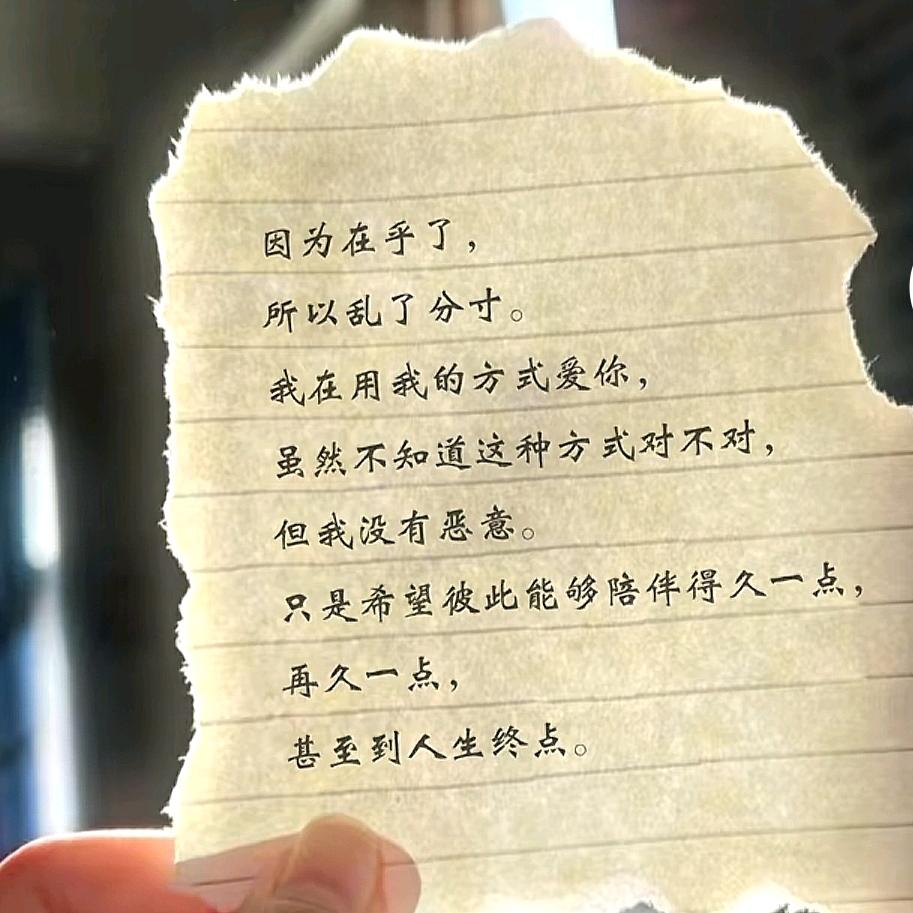 因为在乎了，
所以乱了分寸。
我在用我的方式爱你，
虽然不知道这种方式对不对，
但我没有恶意。
只是希望彼此能够陪伴得久一点，
再久一点，
甚至到人生终点。